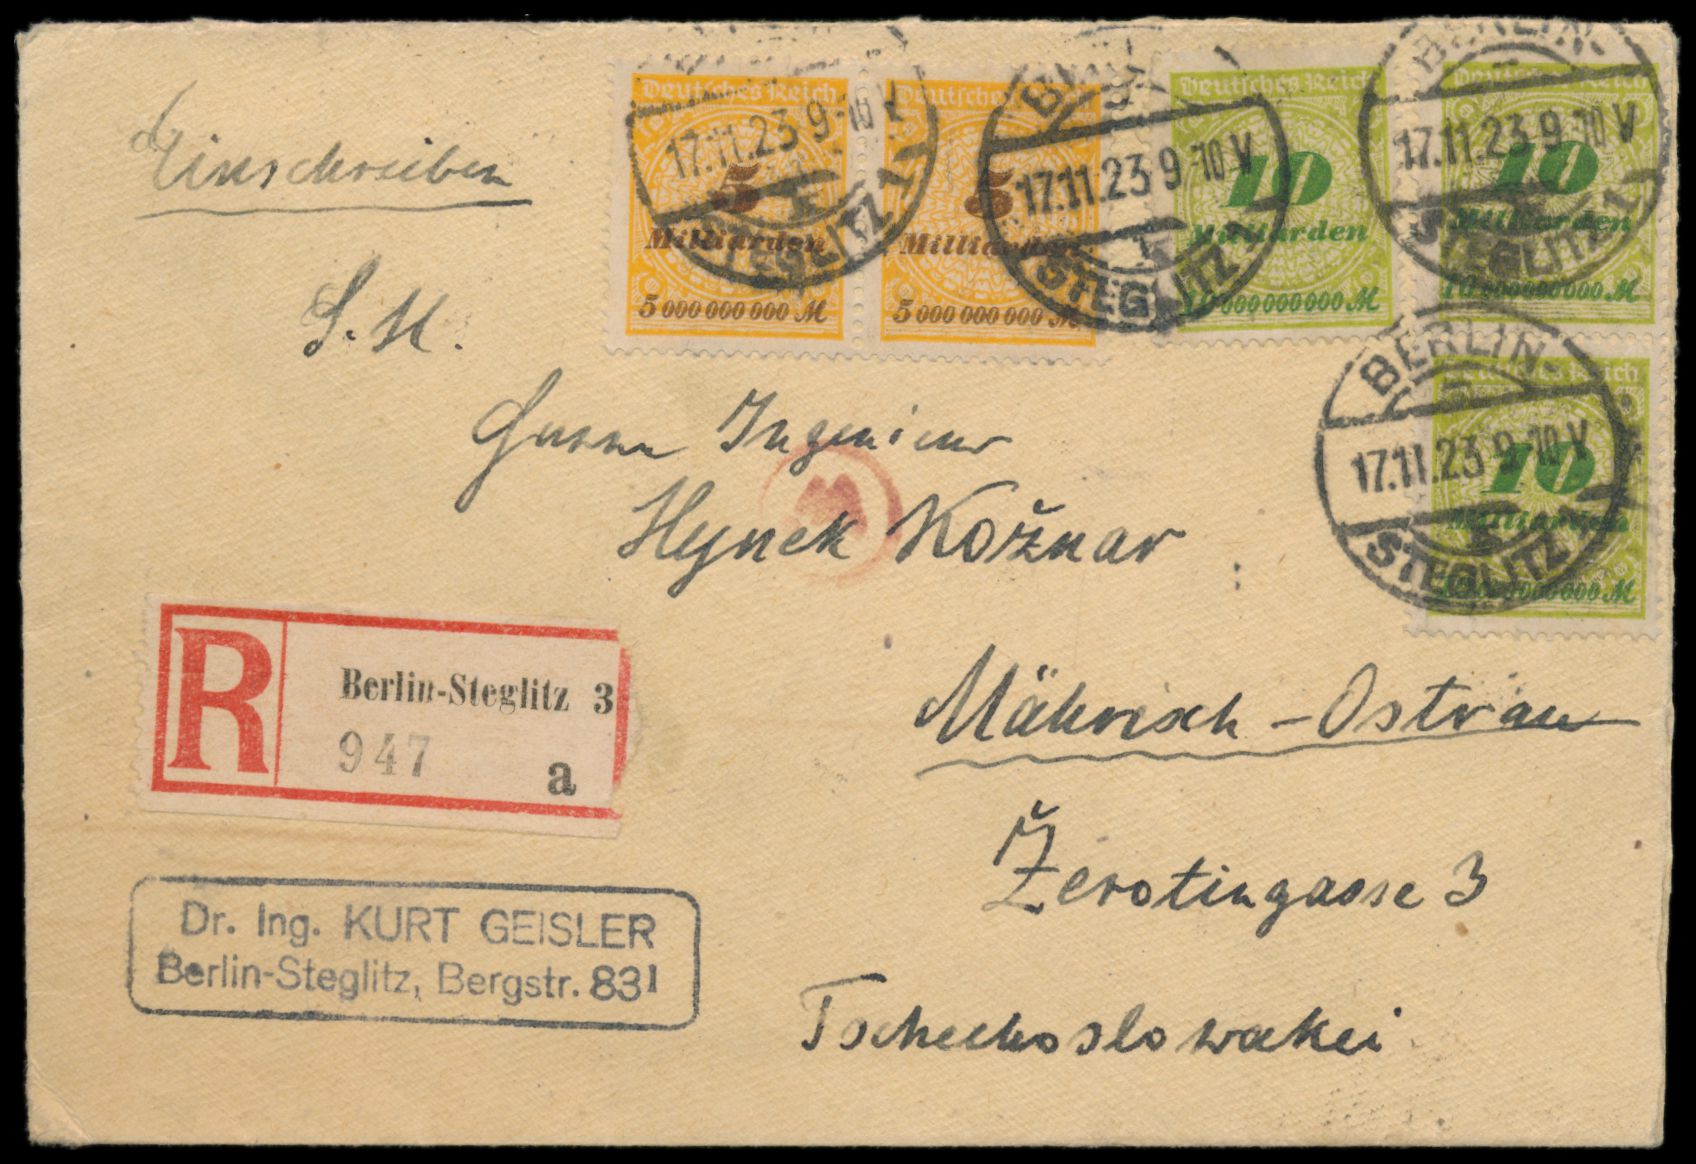 Einschreiben
S. H.
Herrn Ingenieur
Hynek Kožnar
Mährisch-Ostrau
Žerotingasse 3
Tschechoslowakei
Deutsches Reich
5
Milliarden
5 000 000 000 M
Deutsches Reich
5
Milliarden
5 000 000 000 M
Deutsches Reich
10
Milliarden
10 000 000 000 M
Deutsches Reich
10
Milliarden
10 000 000 000 M
Deutsches Reich
10
Milliarden
10 000 000 000 M
17.11.23 9-10 V
STEGLITZ 1
BERLIN
17.11.23 9-10 V
STEGLITZ 1
BERLIN
17.11.23 9-10 V
STEGLITZ 1
BERLIN
17.11.23 9-10 V
STEGLITZ 1
R
Berlin-Steglitz 3
947
a
Dr. Ing. KURT GEISLER
Berlin-Steglitz, Bergstr. 83I